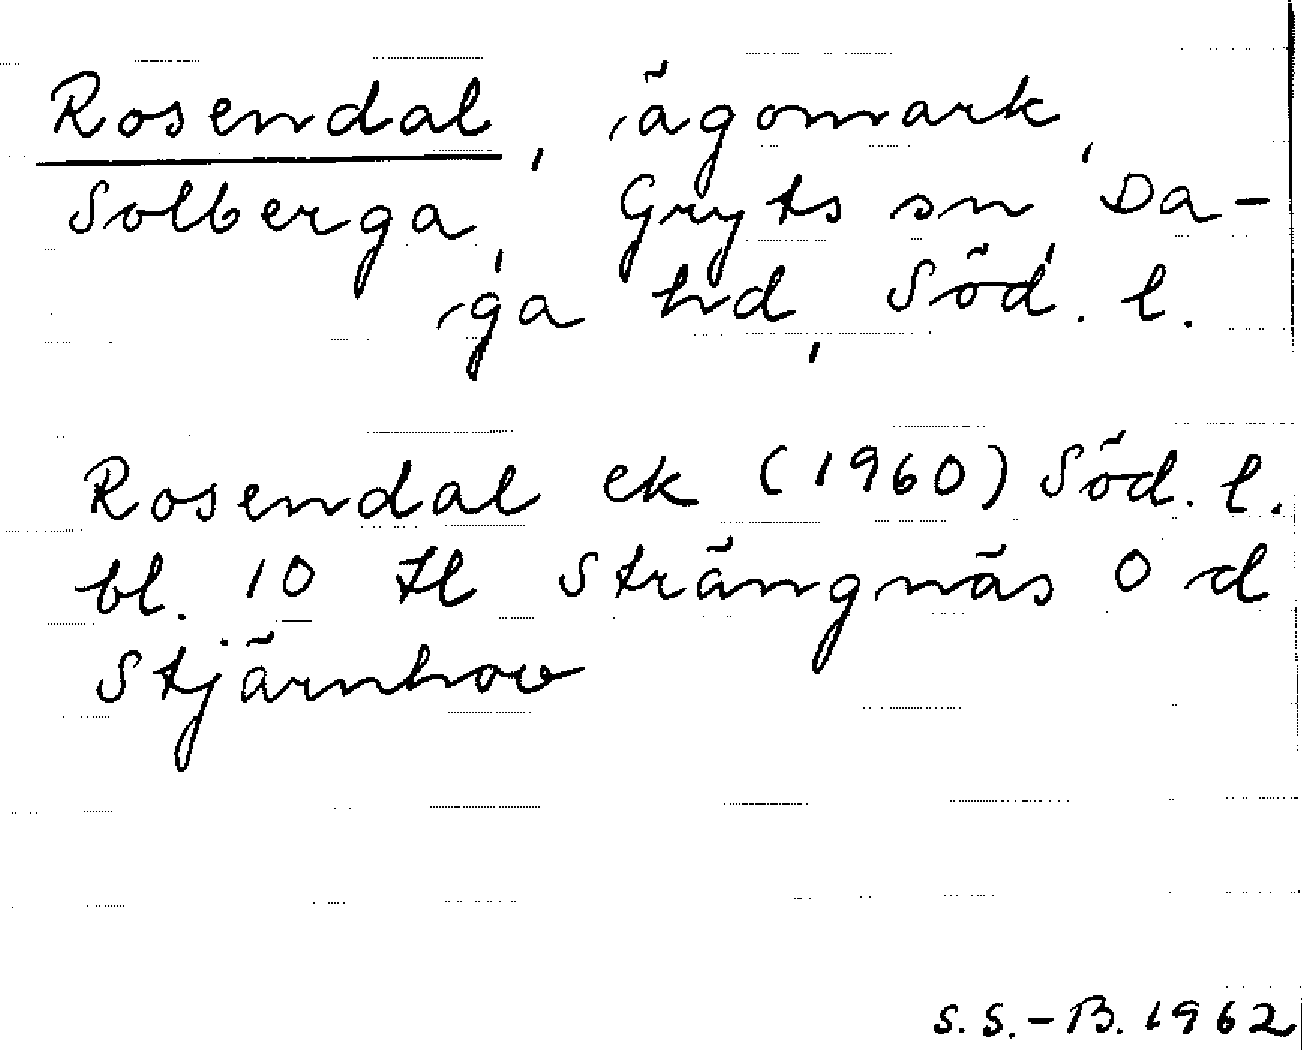 Rosendal, ägomark,
Solberga, Gryts sn, Da-
ga hd, Söd. l.
Rosendal ek (1960) Söd. l.
bl. 10 tl Strängnäs O d
Stjärnhov
S.S.-B. 1962